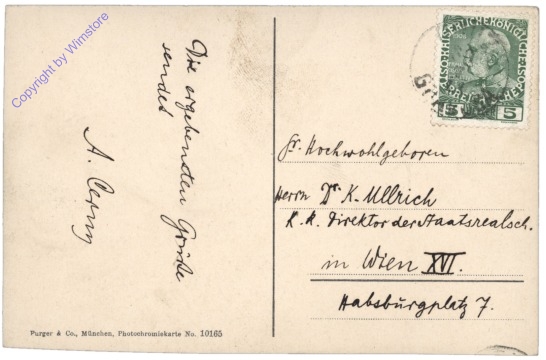 Die ergebensten Grüße
sendet
A. Cerny
Sr. Hochwohlgeboren
Herrn Dr. K. Ullrich
K. K. Direktor der Staatsrealsch.
in Wien XVI.
Habsburgplatz 7.
Purger & Co., München, Photochromiekarte No. 10165
5 5
Copyright by Wimstore